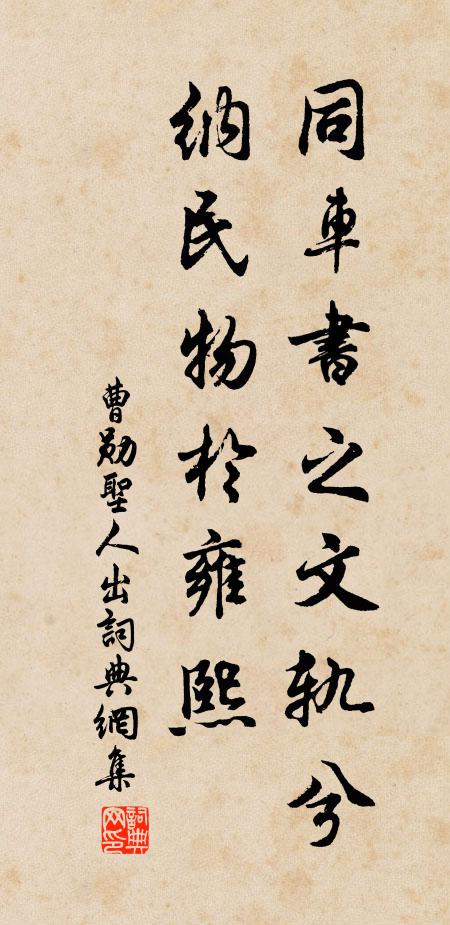 同車書之文軌兮
納民物於雍熙
曹勛聖人出詞典網集
詞典网印